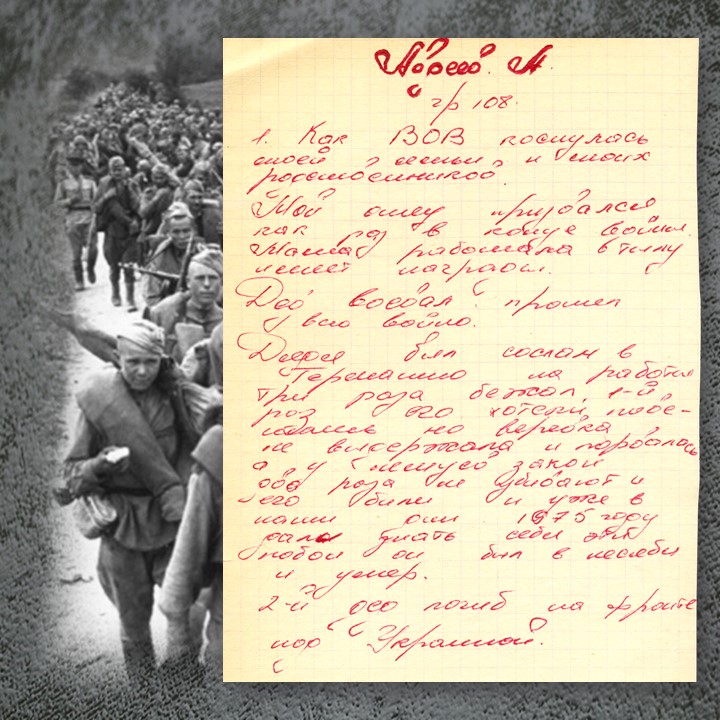 А.
гр 108.
1. Как ВОВ коснулась
моей семьи и моих
родственников.
Мой отец призвался
как раз в конце войны.
Мама работала в тылу
имеет награды.
Дед воевал прошел
всю войну.
Дядя был сослан в
Германию на работы
три раза бежал, 1-й
роз его хотели пове-
но веревка
не выдержала и порвалась
а у немцев закон
два раза не убивают и
его били и уже в
наши дни 1975 году
дали знать себя эти
побои он был в
и умер.
2-й дед погиб на фронте
под Украиной.